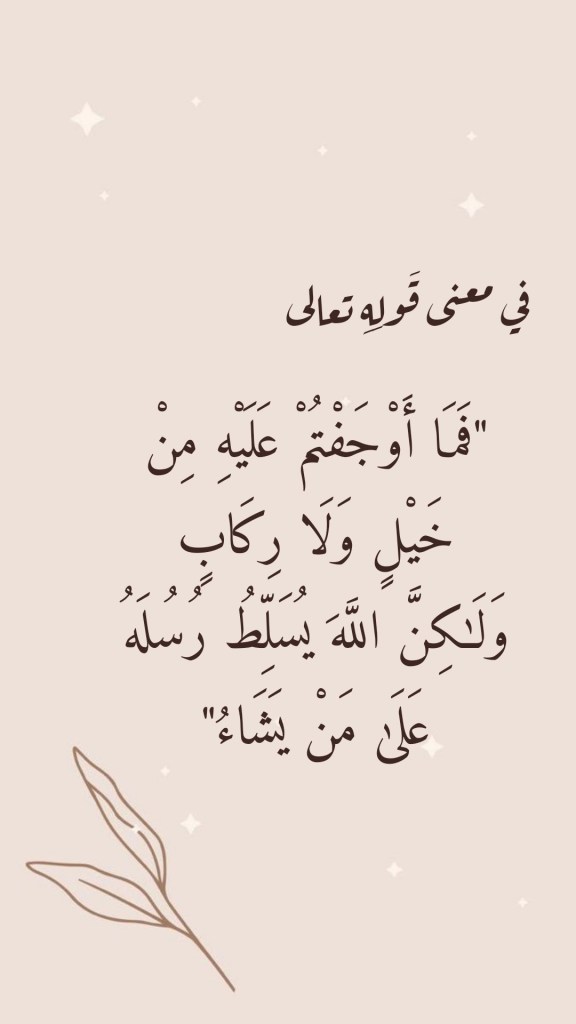 في معنى قَولِهِ تعالى
"فَمَا أَوْجَفْتُمْ عَلَيْهِ مِنْ
خَيْلٍ وَلَا رِكَابٍ
وَلَٰكِنَّ اللَّهَ يُسَلِّطُ رُسُلَهُ
عَلَىٰ مَنْ يَشَاءُ"